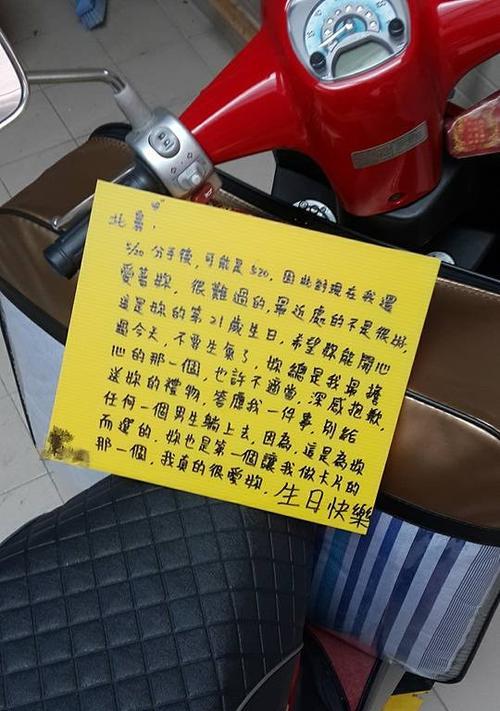 北鼻,
5/20 分手後,可能是 520,因此到現在我還
愛著妳,很難過的,最近處的不是很好,
這是妳的第21歲生日,希望妳能開心
過今天,不要生氣了,妳總是我最擔
心的那一個,也許不適當,深感抱歉,
送妳的禮物,答應我一件事,別給
任何一個男生躺上去,因為,這是為妳
而選的.妳也是第一個讓我做卡片的
那一個,我真的很愛妳. 生日快樂